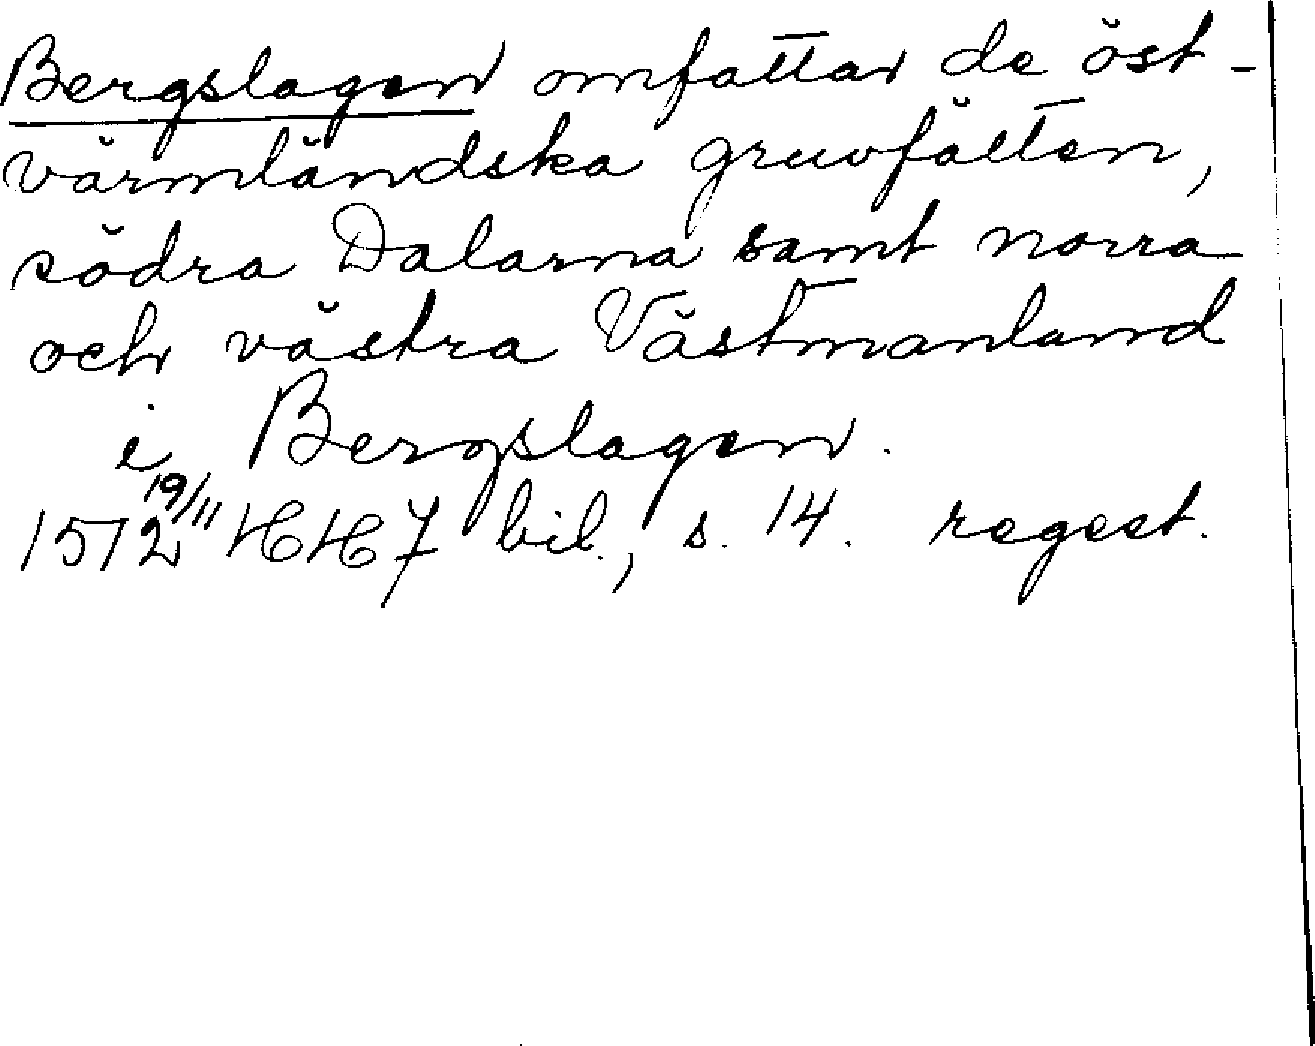 Bergslagen omfattar de öst-
värmländska gruvfälten,
södra Dalarna samt norra
och västra Västmanland
i Bergslagen.
1572 19/11 HH 7 bil., s. 14. regest.